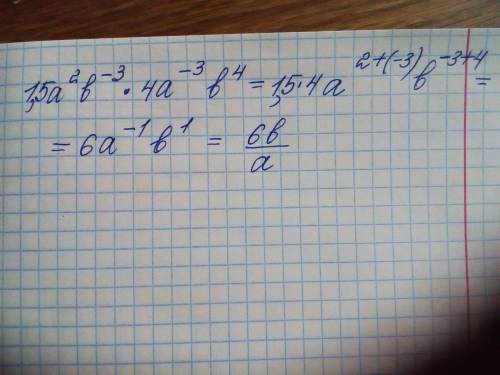 1,5a²b⁻³ · 4a⁻³b⁴ = 1,5·4a²⁺⁽⁻³⁾b⁻³⁺⁴ =
= 6a⁻¹b¹ = 6b/a